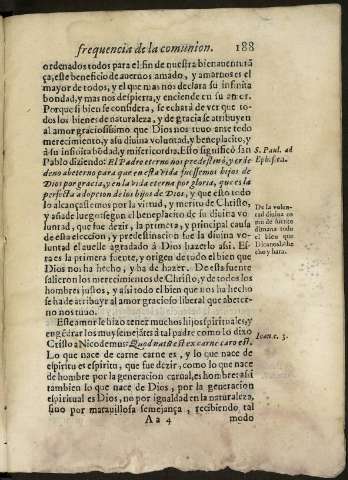 frequencia de la comunion. 188
ordenados todos para el fin de nuestra bienauenturã
ça, este beneficio de auernos amado, y amarnos es el
mayor de todos, y el que mas nos declara su infinita
bondad, y mas nos despierta, y enciende en su amor.
Porque si bien se considera, se echará de ver que to-
dos los bienes de naturaleza, y de gracia se atribuyen
al amor graciosissimo que Dios nos tuuo ante todo
merecimiento, y a su diuina voluntad, y beneplacito, y
à su infinita bõdad, y misericordia. Esto significó san
Pablo diziendo: El Padre eterno nos predestinó, y or de
deno abeterno para que en esta vida fuessemos hijos de
Dios por gracia, y en la vida eterna por gloria, que es la
perfecta adopcion de los hijos de Dios, y que esto todo
lo alcançassemos por la virtud, y merito de Christo,
y añade luego segun el beneplacito de su diuina vo-
luntad, que fue dezir, la primera, y principal causa
de esta eleccion, y predestinacion fue la diuina vo-
luntad el auelle agradado à Dios hazerlo assi. Es-
ta es la primera fuente, y origen de todo el bien que
Dios nos ha hecho, y ha de hazer. De esta fuente
salieron los merecimientos de Christo, y de todos los
hombres justos, y assi todo el bien que nos ha hecho
se ha de atribuyr al amor gracioso liberal que abeter-
no nos tuuo.
Este amor le hizo tener muchos hijos spirituales, y
engẽdrar los muy semejãtes à tal padre como lo dixo
Cristo a Nicodemus: Quod natũ est ex carne caro est.
Lo que nace de carne carne es, y lo que nace de
espiritu es espiritu, que fue dezir, como lo que nace
de hombre por la generacion carnal, es hombre: assi
tambien lo que nace de Dios, por la generacion
espiritual es Dios, no por igualdad en la naturaleza,
sino por marauillosa semejança, recibiendo tal
Aa 4 modo
S. Paul. ad
Ephes. 1.
De la volun-
tad diuina co
mo de fuente
dimana todo
el bien que
Dios nos ha he
cho y hara.
Ioan. c. 3.